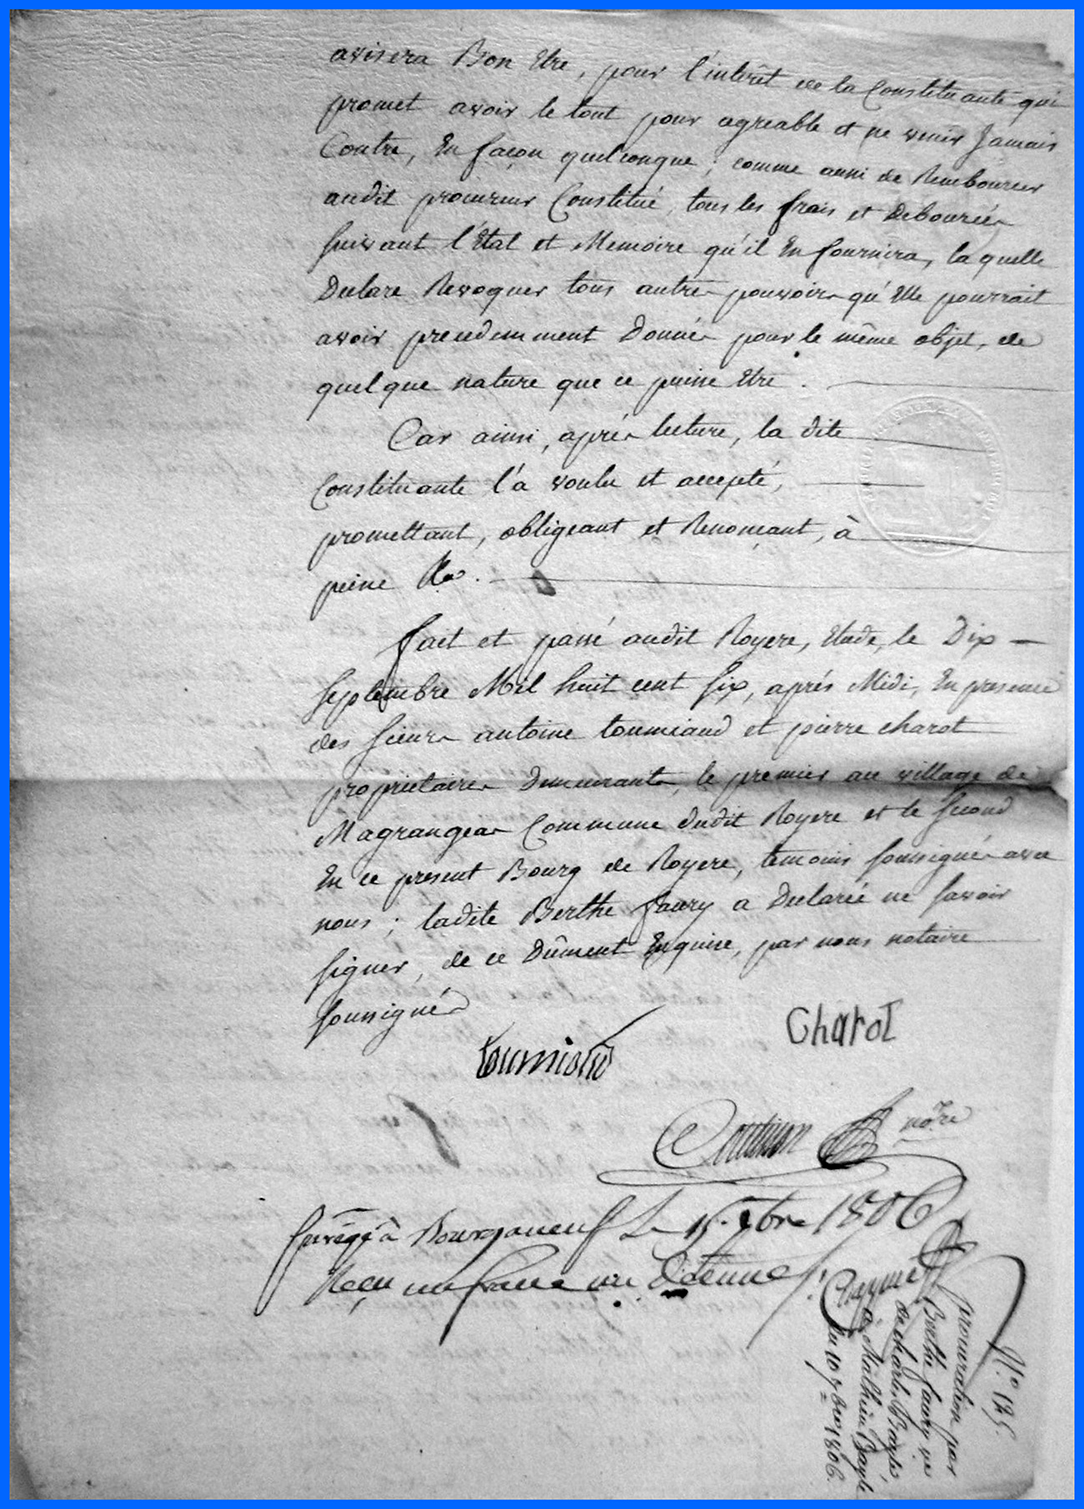 avisera Bon Etre, pour l'interêt de la Constituante qui
promet avoir le tout pour agreable et ne venir Jamais
Contre, En façon quelconque; comme aussi de Rembourcer
audit procureur Constitué, tous les frais et Debourcés
suivant l'Etat et Memoire qu'il En fournira, la quelle
Declare Revoquer tous autres pouvoirs qu'Elle pourrait
avoir precedemment Donnés pour le même objet, de
quelque nature que ce puisse Etre.
Car ainsi, après lecture, la dite
Constituante l'a voulu et accepté,
promettant, obligeant et Renonçant, à
peine &a.
fait et passé audit Royere, Etude, le Dix
Septembre Mil huit cent six, après Midi, En presence
des sieurs antoine toumiaud et pierre charot
proprietaires demeurants, le premier au village de
Magrangeas Commune dudit Royere et le second
En ce present Bourg de Royere, temoins soussignés avec
nous; ladite Berthe faury a Declarée ne savoir
signer, de ce Dûment Enquise, par nous notaire
soussigné
toumiaud
Charot
nore
Enregé à Bourganeuf Le 15 7bre 1806
Reçu un franc un Dixième
No. 125
procuration par
Berthe faury ve
de charle Bayle
à Mathieu Bayle
Du 10 7bre 1806.